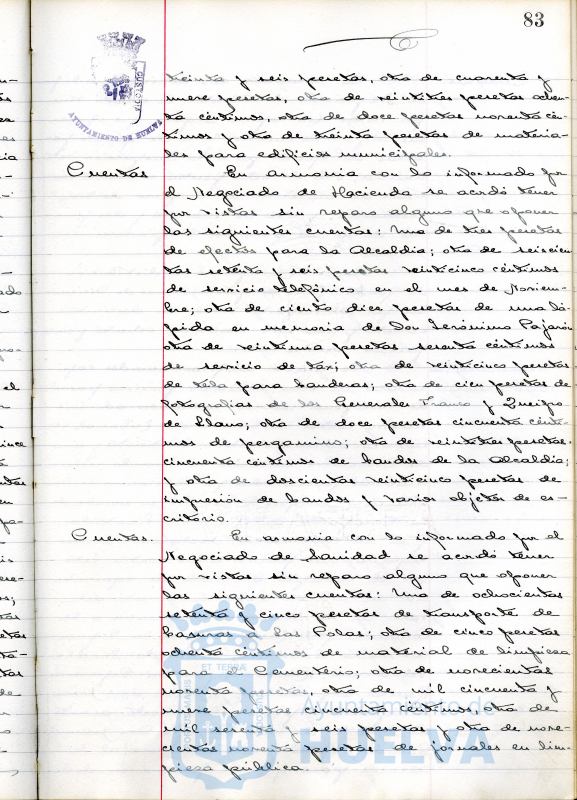 83
AYUNTAMIENTO DE HUELVA
treinta y seis pesetas, otra de cuarenta y
nueve pesetas, otra de veintitres pesetas ochen-
ta céntimos, otra de doce pesetas noventa cén-
timos y otra de treinta pesetas de materia-
les para edificios municipales.
Cuentas En armonia con lo informado por
el Negociado de Hacienda se acordó tener
por vistas sin reparo alguno que oponer
las siguientes cuentas: Una de tres pesetas
de efectos para la Alcaldia; otra de seiscien
tas setenta y seis pesetas veinticinco céntimos
de servicio telefónico en el mes de Noviem-
bre; otra de ciento diez pesetas de una lá-
pida en memoria de Don Jerónimo Pajarón
otra de veintiuna pesetas sesenta céntimos
de servicio de taxi; otra de veinticinco pesetas
de tela para banderas; otra de cien pesetas de
fotografias de los Generales Franco y Queipo
de Llano; otra de doce pesetas cincuenta cénti-
mos de pergamino; otra de veintitres pesetas
cincuenta céntimos de bandos de la Alcaldia;
y otra de doscientas veinticinco pesetas de
impresión de bandos y varios objetos de es-
critorio.
Cuentas. En armonia con lo informado por el
Negociado de Sanidad se acordó tener
por vistas sin reparo alguno que oponer
las siguientes cuentas: Una de ochocientas
setenta y cinco pesetas de transporte de
basuras a las Polas; otra de cinco pesetas
ochenta céntimos de material de limpieza
para el Cementerio; otra de novecientas
noventa pesetas, otra de mil cincuenta y
nueve pesetas cincuenta céntimos otra de
mil sesenta y seis pesetas y otra de nove-
cientas noventa pesetas de jornales en lim-
pieza pública.
Ayuntamiento de
HUELVA